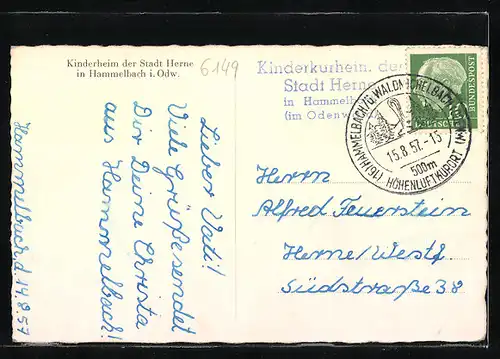 Kinderheim der Stadt Herne
in Hammelbach i. Odw.
6149
Kinderkurheim der
Stadt Herne
in Hammelb
(im Odenw
(16) HAMMELBACH/ü. WALDMICHELBACH
15.8.57.-15
500m
HÖHENLUFTKURORT
DEUTSCHE
BUNDESPOST
Hammelbach, d. 14.8.57
Lieber Vati!
Viele Grüße sendet
Dir Deine Christa
aus Hammelbach!
Herrn
Alfred Feuerstein
Herne/Westf.
Südstraße 38